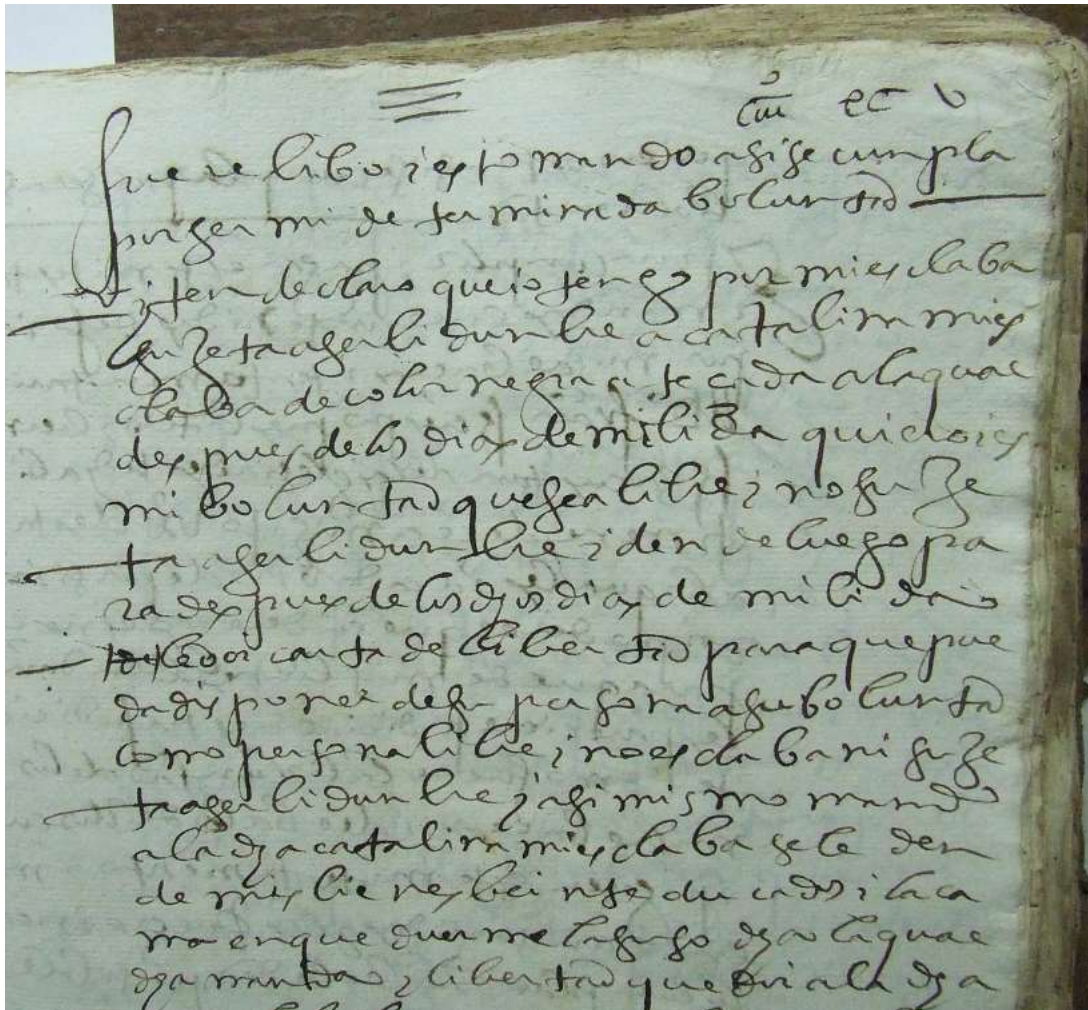 fuere libo i esto mando asi se cumpla
por ser mi determinada boluntad
iten declaro que io tengo por mi esclaba
suzeta a serbidunbre a catalina mi es
claba de color negra atezada a la qual
despues de los dias de mi bida quiero i es
mi boluntad que sea libre i no suze
ta a serbidunbre i dende luego pa
ra despues de los dhos dias de mi bida
le doi carta de libertad para que pue
da disponer de su persona a su boluntad
como persona libre i no esclaba ni suze
ta a serbidunbre i asimismo mando
a la dha catalina mi esclaba se le den
de mis bienes beinte ducados i la ca
ma en que duerme la qual
dha manda i libertad que doi a la dha